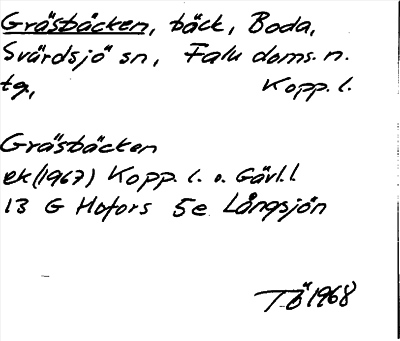 Gräsbäcken, bäck, Boda,
Svärdsjö sn, Falu doms. n.
tg, Kopp. l.
Gräsbäcken
ek (1967) Kopp. l. o. Gävl. l
13 G Hofors 5e Långsjön
TÖ 1968